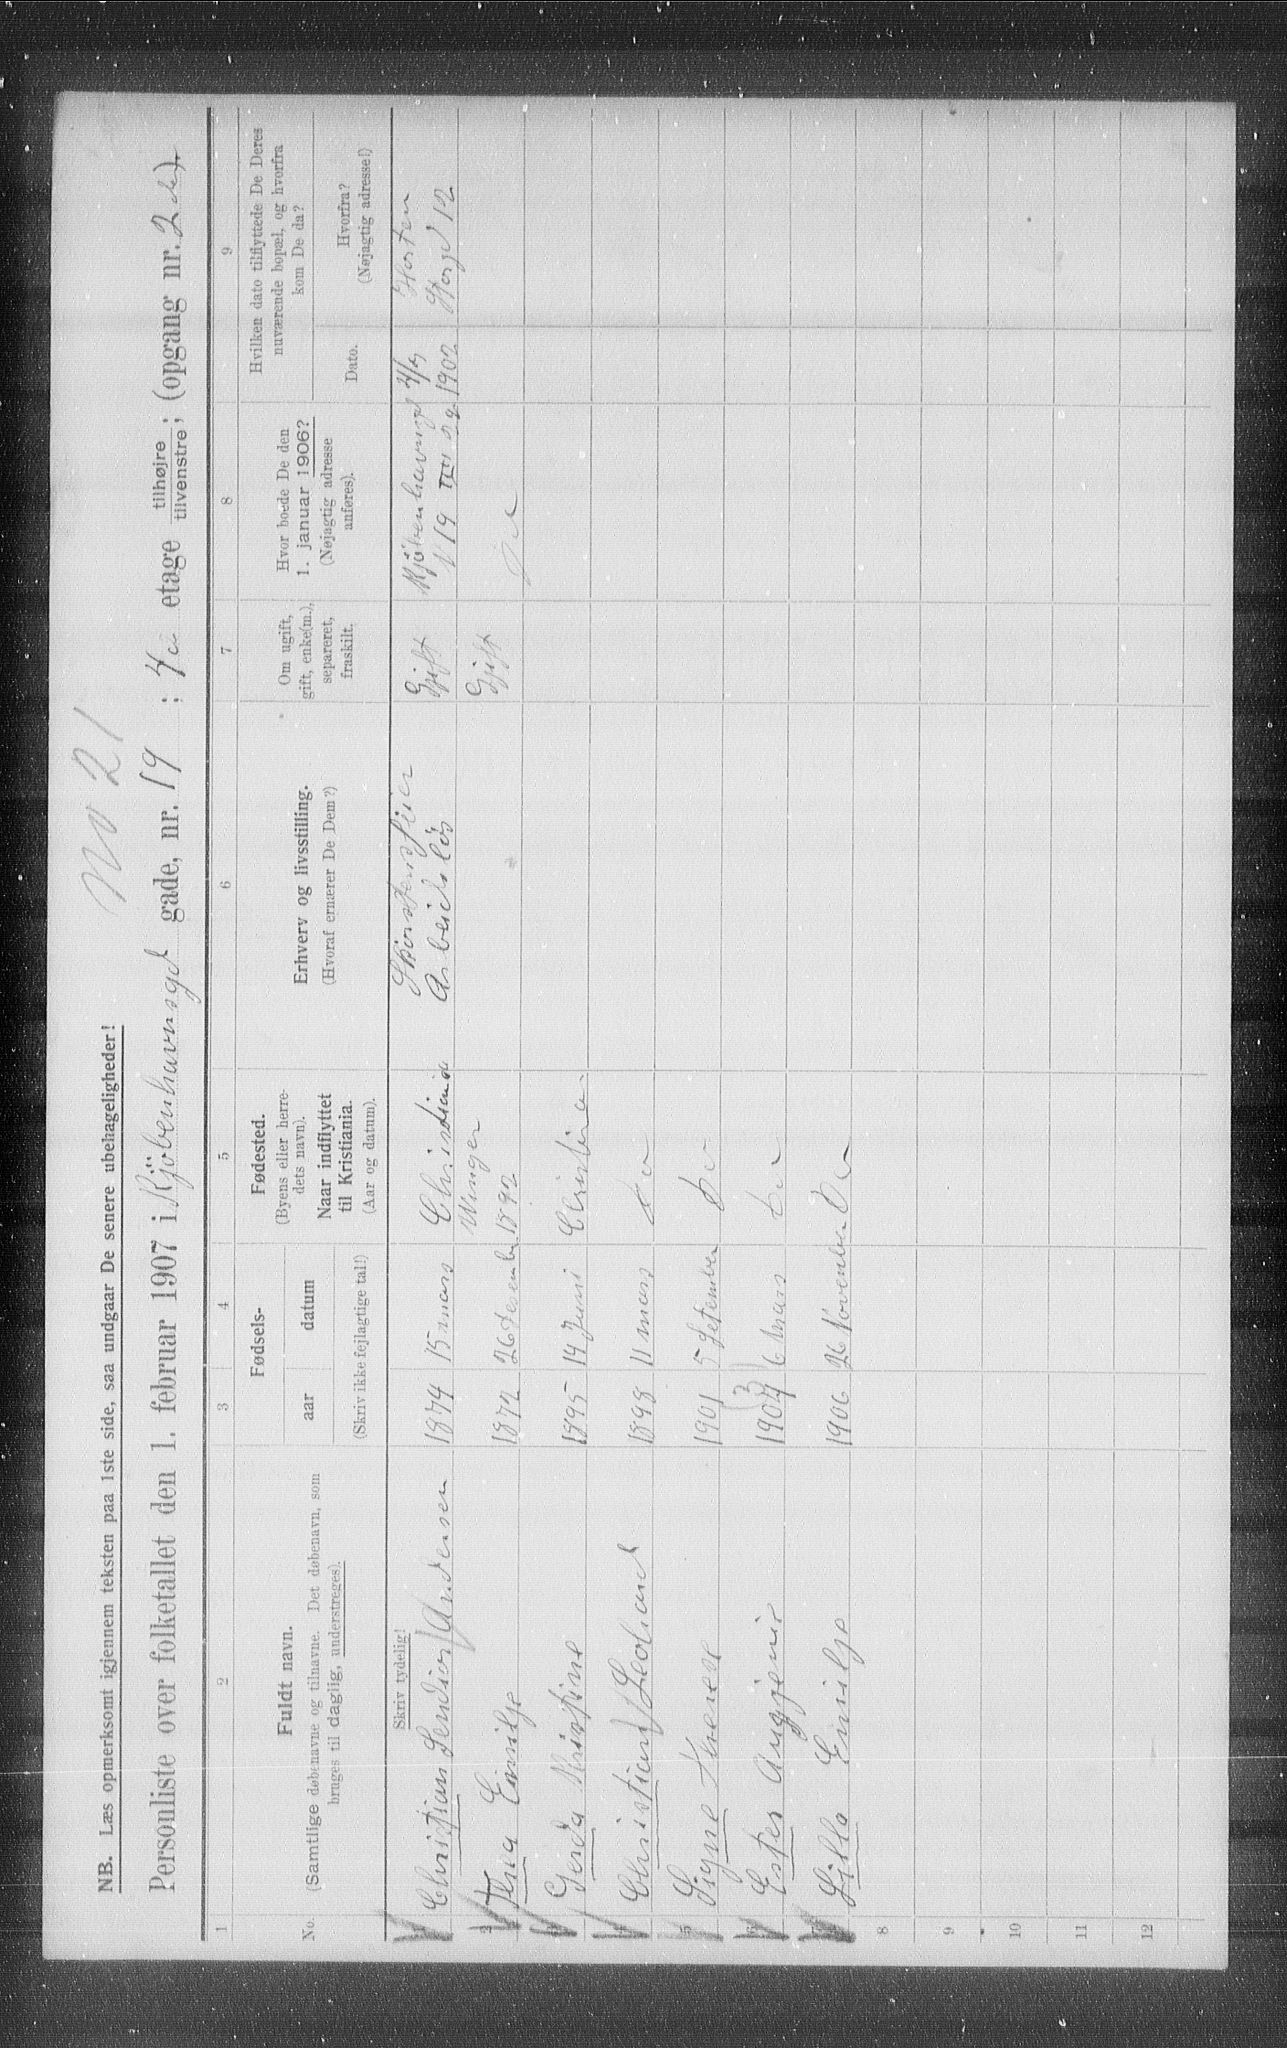 No 21
NB. Læs opmerksomt igjennem teksten paa 1ste side, saa undgaar De senere ubehageligheder!
Personliste over folketallet den 1. februar 1907 i Kjöbenhavnsgd gade, nr. 19 ; 4de etage tilhøjre tilvenstre ; (opgang nr. 2 ).
1 2 3 4 5 6 7 8 9
No.
Fuldt navn.
(Samtlige døbenavne og tilnavne. Det døbenavn, som
bruges til daglig, understreges).
Fødsels-
aar datum
(Skriv ikke fejlagtige tal!)
Fødested.
(Byens eller herre-
dets navn).
Naar indflyttet
til Kristiania.
(Aar og datum).
Erhverv og livsstilling.
(Hvoraf ernærer De Dem?)
Om ugift,
gift, enke(m.),
separeret,
fraskilt.
Hvor boede De den
1. januar 1906?
(Nøjagtig adresse
anføres).
Hvilken dato tilflyttede De Deres
nuværende bopæl, og hvorfra
kom De da?
Dato.
Hvorfra?
(Nøjagtig adresse!)
Skriv tydelig!
Christian Andersen 1874 15 mars Christiania Arbeidslös Gift Kjöbenhavnsgd 19 1902 Horten Storgd 12
2 Emilje 1872 26 Desember Vinger 1892 Gift Do
Gerda Kristine 1895 14 Juni Christiania
Christian Leohard 1898 11 mars Do
5 Signe 1901 5 September Do
6 Ester 3 6 Mars Do
Lilla Emilje 1906 26 November Do
8
9
10
11
12